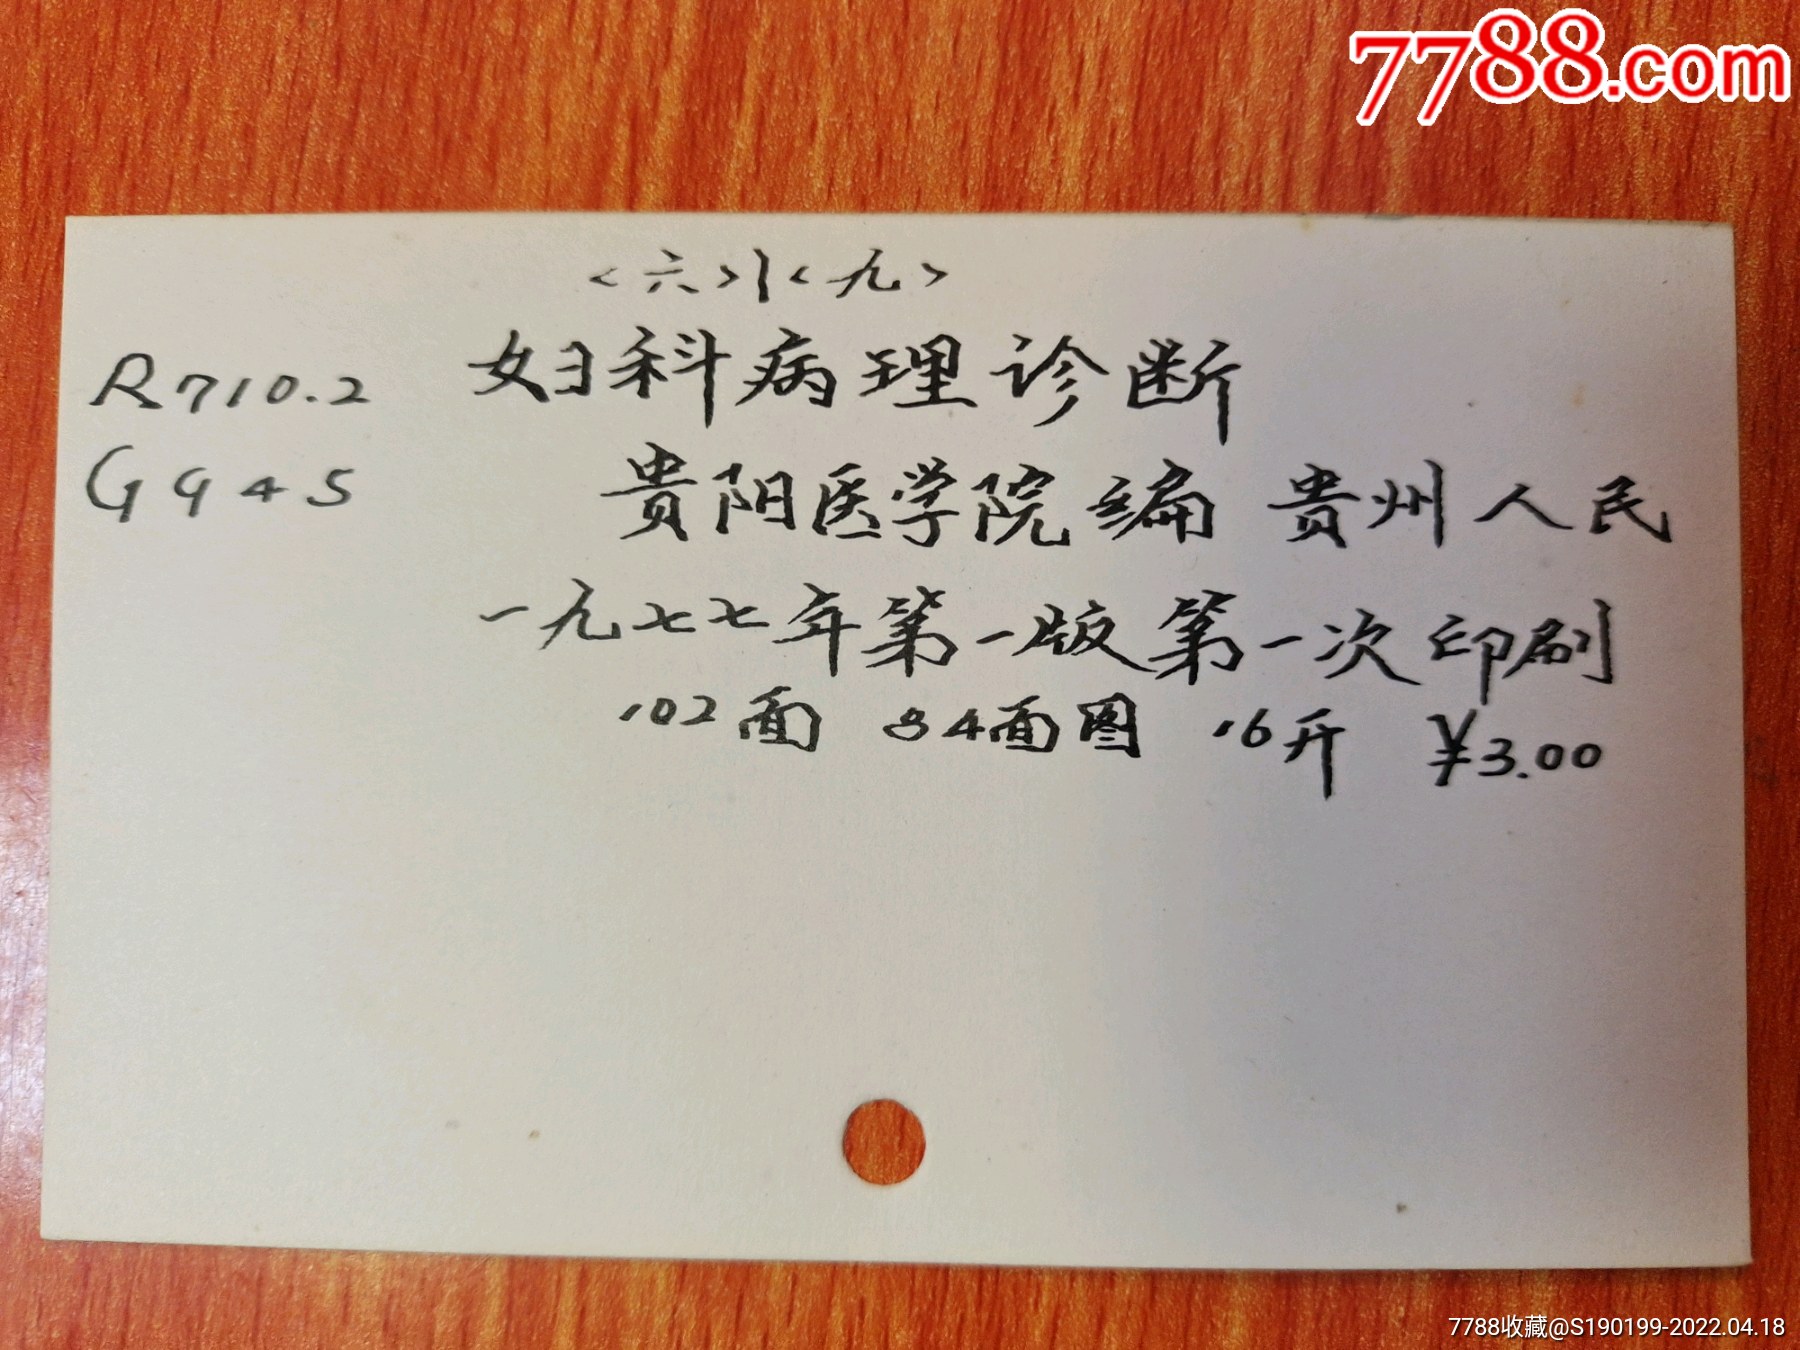 7788.com
<六>|<九>
R710.2 妇科病理诊断
G945 贵阳医学院编 贵州人民
一九七七年第一版第一次印刷
102面 84面图 16开 ¥3.00
7788收藏@S190199-2022.04.18